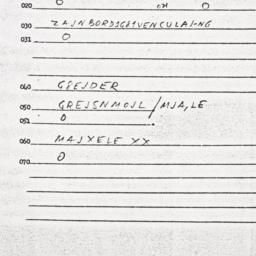 020 0 021 0
030 ZAJNBORDSGEIVENCULAJ-NG
031 0
040 GEEJDER
050 GREJSNMOJL/MJA,LE
052 0
060 MAJXELE XX
070 0